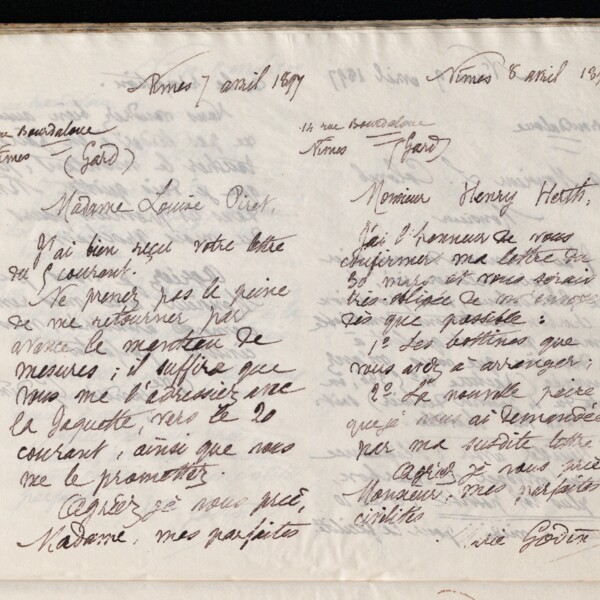 Nîmes 7 avril 1897
rue Bourdaloue
Nîmes (Gard)
Madame Louise Piret,
J'ai bien reçu votre lettre
du 5 courant.
Ne prenez pas la peine
de me retourner par
avance le manteau de
mesures ; il suffira que
vous me l'adressiez avec
la Jaquette, vers le 20
courant, ainsi que vous
me le promettez.
Agréez je vous prie,
Madame, mes parfaites
Nîmes 8 avril 189
14 rue Bourdaloue
Nîmes (Gard)
Monsieur Henry Herth,
J'ai l'honneur de vous
confirmer ma lettre du
30 mars et vous serais
très-obligée de m'envoyer
dès que possible :
1º Les bottines que
vous avez à arranger ;
2º La nouvelle paire
que je vous ai demandée
par ma susdite lettre
Agréez je vous prie
Monsieur, mes parfaites
civilités
Marie Godin